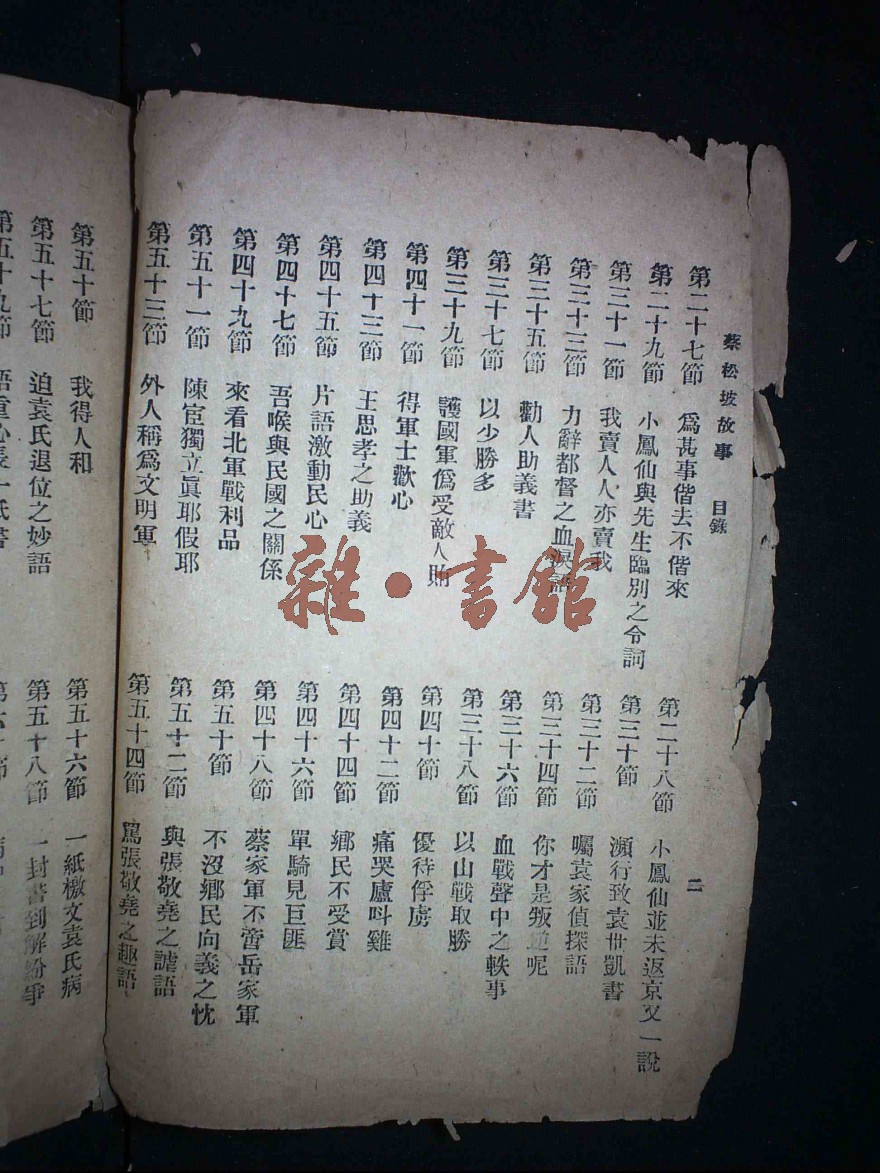 蔡松坡故事 目錄 二
第二十七節 爲甚事偕去不偕來
第二十八節 小鳳仙並未返京又一說
第二十九節 小鳳仙與先生臨別之令詞
第三十節 瀕行致袁世凱書
第三十一節 我賣人人亦賣我
第三十二節 囑袁家偵探語
第三十三節 力辭都督之血淚語
第三十四節 你才是叛逆呢
第三十五節 勸人助義書
第三十六節 血戰聲中之軼事
第三十七節 以少勝多
第三十八節 以山戰取勝
第三十九節 護國軍僞受敵人賄
第四十節 優待俘虜
第四十一節 得軍士歡心
第四十二節 痛哭廬呌雞
第四十三節 王思孝之助義
第四十四節 鄉民不受賞
第四十五節 片語激動民心
第四十六節 單騎見巨匪
第四十七節 吾喉與民國之關係
第四十八節 蔡家軍不啻岳家軍
第四十九節 來看北軍戰利品
第五十節 不沒鄉民向義之忱
第五十一節 陳宧獨立眞耶假耶
第五十二節 與張敬堯之謔語
第五十三節 外人稱爲文明軍
第五十四節 罵張敬堯之趣語
第五十節 我得人和
第五十六節 一紙檄文袁氏病
第五十七節 迫袁氏退位之妙語
第五十八節 一封書到解紛爭
第五十九節 語重心長一紙書
雜·書館